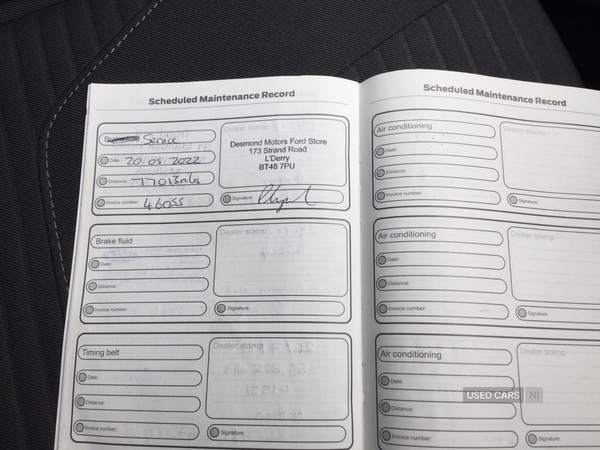 Scheduled Maintenance Record
Service
Dealer stamp
Date: 20.05.2022
Distance:
Invoice number: 46055
Desmond Motors Ford Store
173 Strand Road
L'Derry
BT48 7PU
Signature:
Brake fluid
Dealer stamp
Date:
Distance:
Invoice number:
Signature:
Timing belt
Dealer stamp
Date:
Distance:
Invoice number:
Signature:
Scheduled Maintenance Record
Air conditioning
Dealer stamp
Date:
Distance:
Invoice number:
Signature:
Air conditioning
Dealer stamp
Date:
Distance:
Invoice number:
Signature:
Air conditioning
Dealer stamp
Date:
Distance:
Invoice number:
Signature:
USED CARS NI